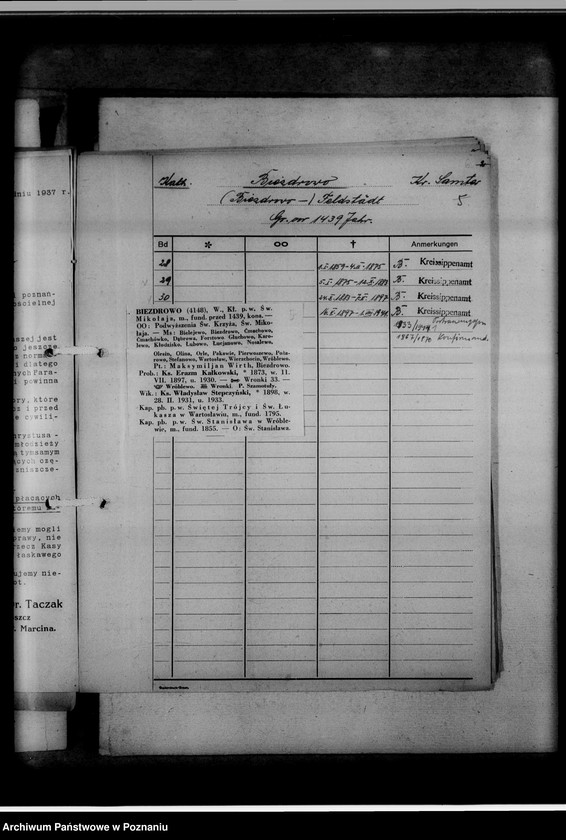 dniu 1937 r.
i poznan-
ościelnej
aszej jest
o jeszcze
normą
i dlatego
nych Para-
i powinna
ory, które
oz i przed
e cywili-
rystusa -
młodzieży
tymsamym
ących czę-
zniszcze-
płacących
tóremu
iemy mogli
prawy, nie
rzecz Kasy
łaskawego
ujemy nie-
ot.
r. Taczak
szcz
. Marcina.
Kath. Biezdrowo Kr. Samter
(Biezdrowo-) Feldstädt 5
Gr. vor 1439 Jahr.
Bd * ∞ † Anmerkungen
28 1875 B- Kreissippenamt
29 B- Kreissippenamt
30 B- Kreissippenamt
B- Kreissippenamt
1933/1944
BIEZDROWO (4148), W., Kł. p. w. Św.
Mikołaja, m., fund. przed 1439, kons. —
OO: Podwyższenia Św. Krzyża, Św. Miko-
łaja. — Ms: Bielejewo, Biezdrowo, Ćmachowo,
Ćmachówko, Dąbrowa, Forestowo, Głuchowo, Karo-
lewo, Kłodzisko, Lubowo, Lucjanowo, Nosalewo,
Olesin, Olina, Orle, Pakawie, Pierwoszewo, Poża-
rowo, Stefanowo, Wartosław, Wierzchocin, Wróblewo.
Pt.: Maksymiljan Wirth, Biezdrowo.
Prob.: Ks. Erazm Kałkowski, * 1873, w. 11.
VII. 1897, u. 1930. — Wronki 33. —
Wróblewo. Wronki. P. Szamotuły.
Wik.: Ks. Władysław Stepczyński, * 1898, w.
28. II. 1931, u. 1933.
Kap. pb. p. w. Świętej Trójcy i Św. Łu-
kasza w Wartosławiu, m., fund. 1795.
Kap. pb. p. w. Św. Stanisława w Wróble-
wie, m., fund. 1855. — O: Św. Stanisława.
Archiwum Państwowe w Poznaniu